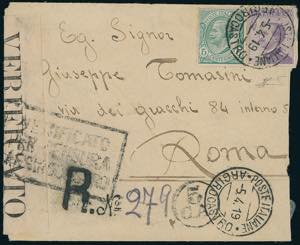 POSTE ITALIANE
ARGIROCASTRO
5.4.19
5
Eg. Signor
Giuseppe Tomasini
via dei gracchi 84 interno 5
Roma
VERIFICATO
VERIFICATO
PER
CENSURA
R.
279
POSTE ITALIANE
5.4.19
ARGIROCASTRO